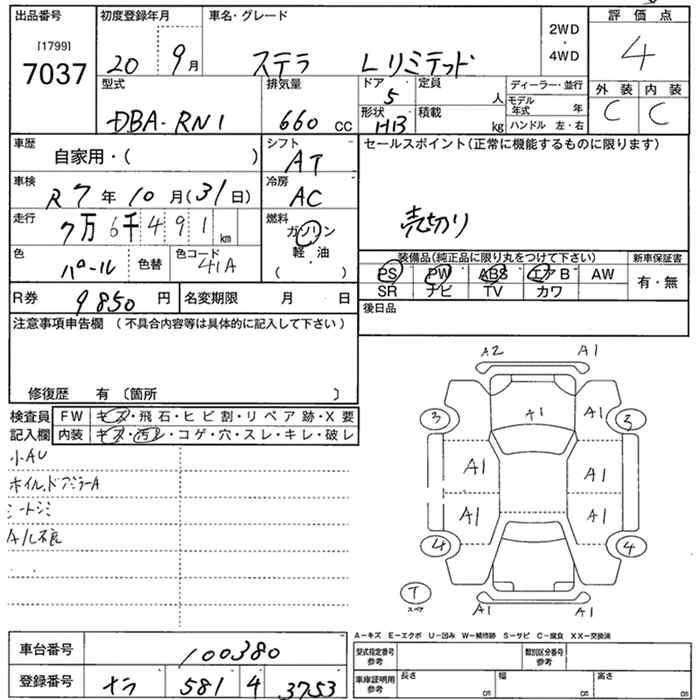 出品番号 初度登録年月 車名・グレード 2WD・4WD 評価点
[1799]
7037 20 9月 ステラ Lリミテッド 4
型式 排気量 ドア 定員 ディーラー・並行 外装 内装
DBA-RN1 660 cc 5 人 モデル年式 年 C C
形状 積載
HB kg ハンドル 左・右
車歴 シフト セールスポイント(正常に機能するものに限ります)
自家用・( ) AT
車検 冷房
R7年10月(31日) AC
走行 燃料 売切り
7万6千491km ガソリン
色 色替 色コード 軽油
パール 41A ( )
装備品(純正品に限り丸をつけて下さい) 新車保証書
PS PW ABS エアB AW 有・無
SR ナビ TV カワ
R券 9850円 名変期限 月 日 後日品
注意事項申告欄(不具合内容等は具体的に記入して下さい)
修復歴 有(箇所 )
検査員 FW キズ・飛石・ヒビ割・リペア跡・X要
記入欄 内装 キズ・汚レ・コゲ・穴・スレ・キレ・破レ
小AU
ホイル、ドアミラーA
シートシミ
A/C不良
A2 A1
A1 A1
3 3
A1 A1
A1 A1
4 4
T
スペア
A1 A1
A-キズ E-エクボ U-凹み W-補修跡 S-サビ C-腐食 XX-交換済
車台番号 100380 型式指定番号 参考 類別区分番号 参考
登録番号 ナラ 581 4 3753 車庫証明用 参考 長さ cm 幅 cm 高さ cm